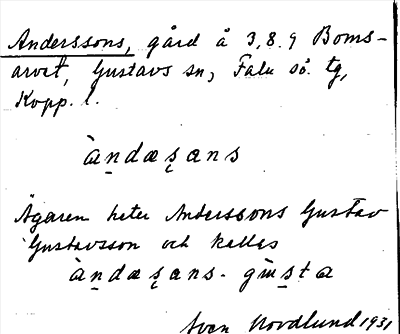 Anderssons, gård å 3,8.9 Boms-
arvet, Gustavs sn, Falu sö. tg,
Kopp. l.
àn̠dæʂ̠æns
Ägaren heter Anderssons Gustav
Gustavsson och kallas
àn̠dæʂ̠ans-
Sven Nordlund 1931